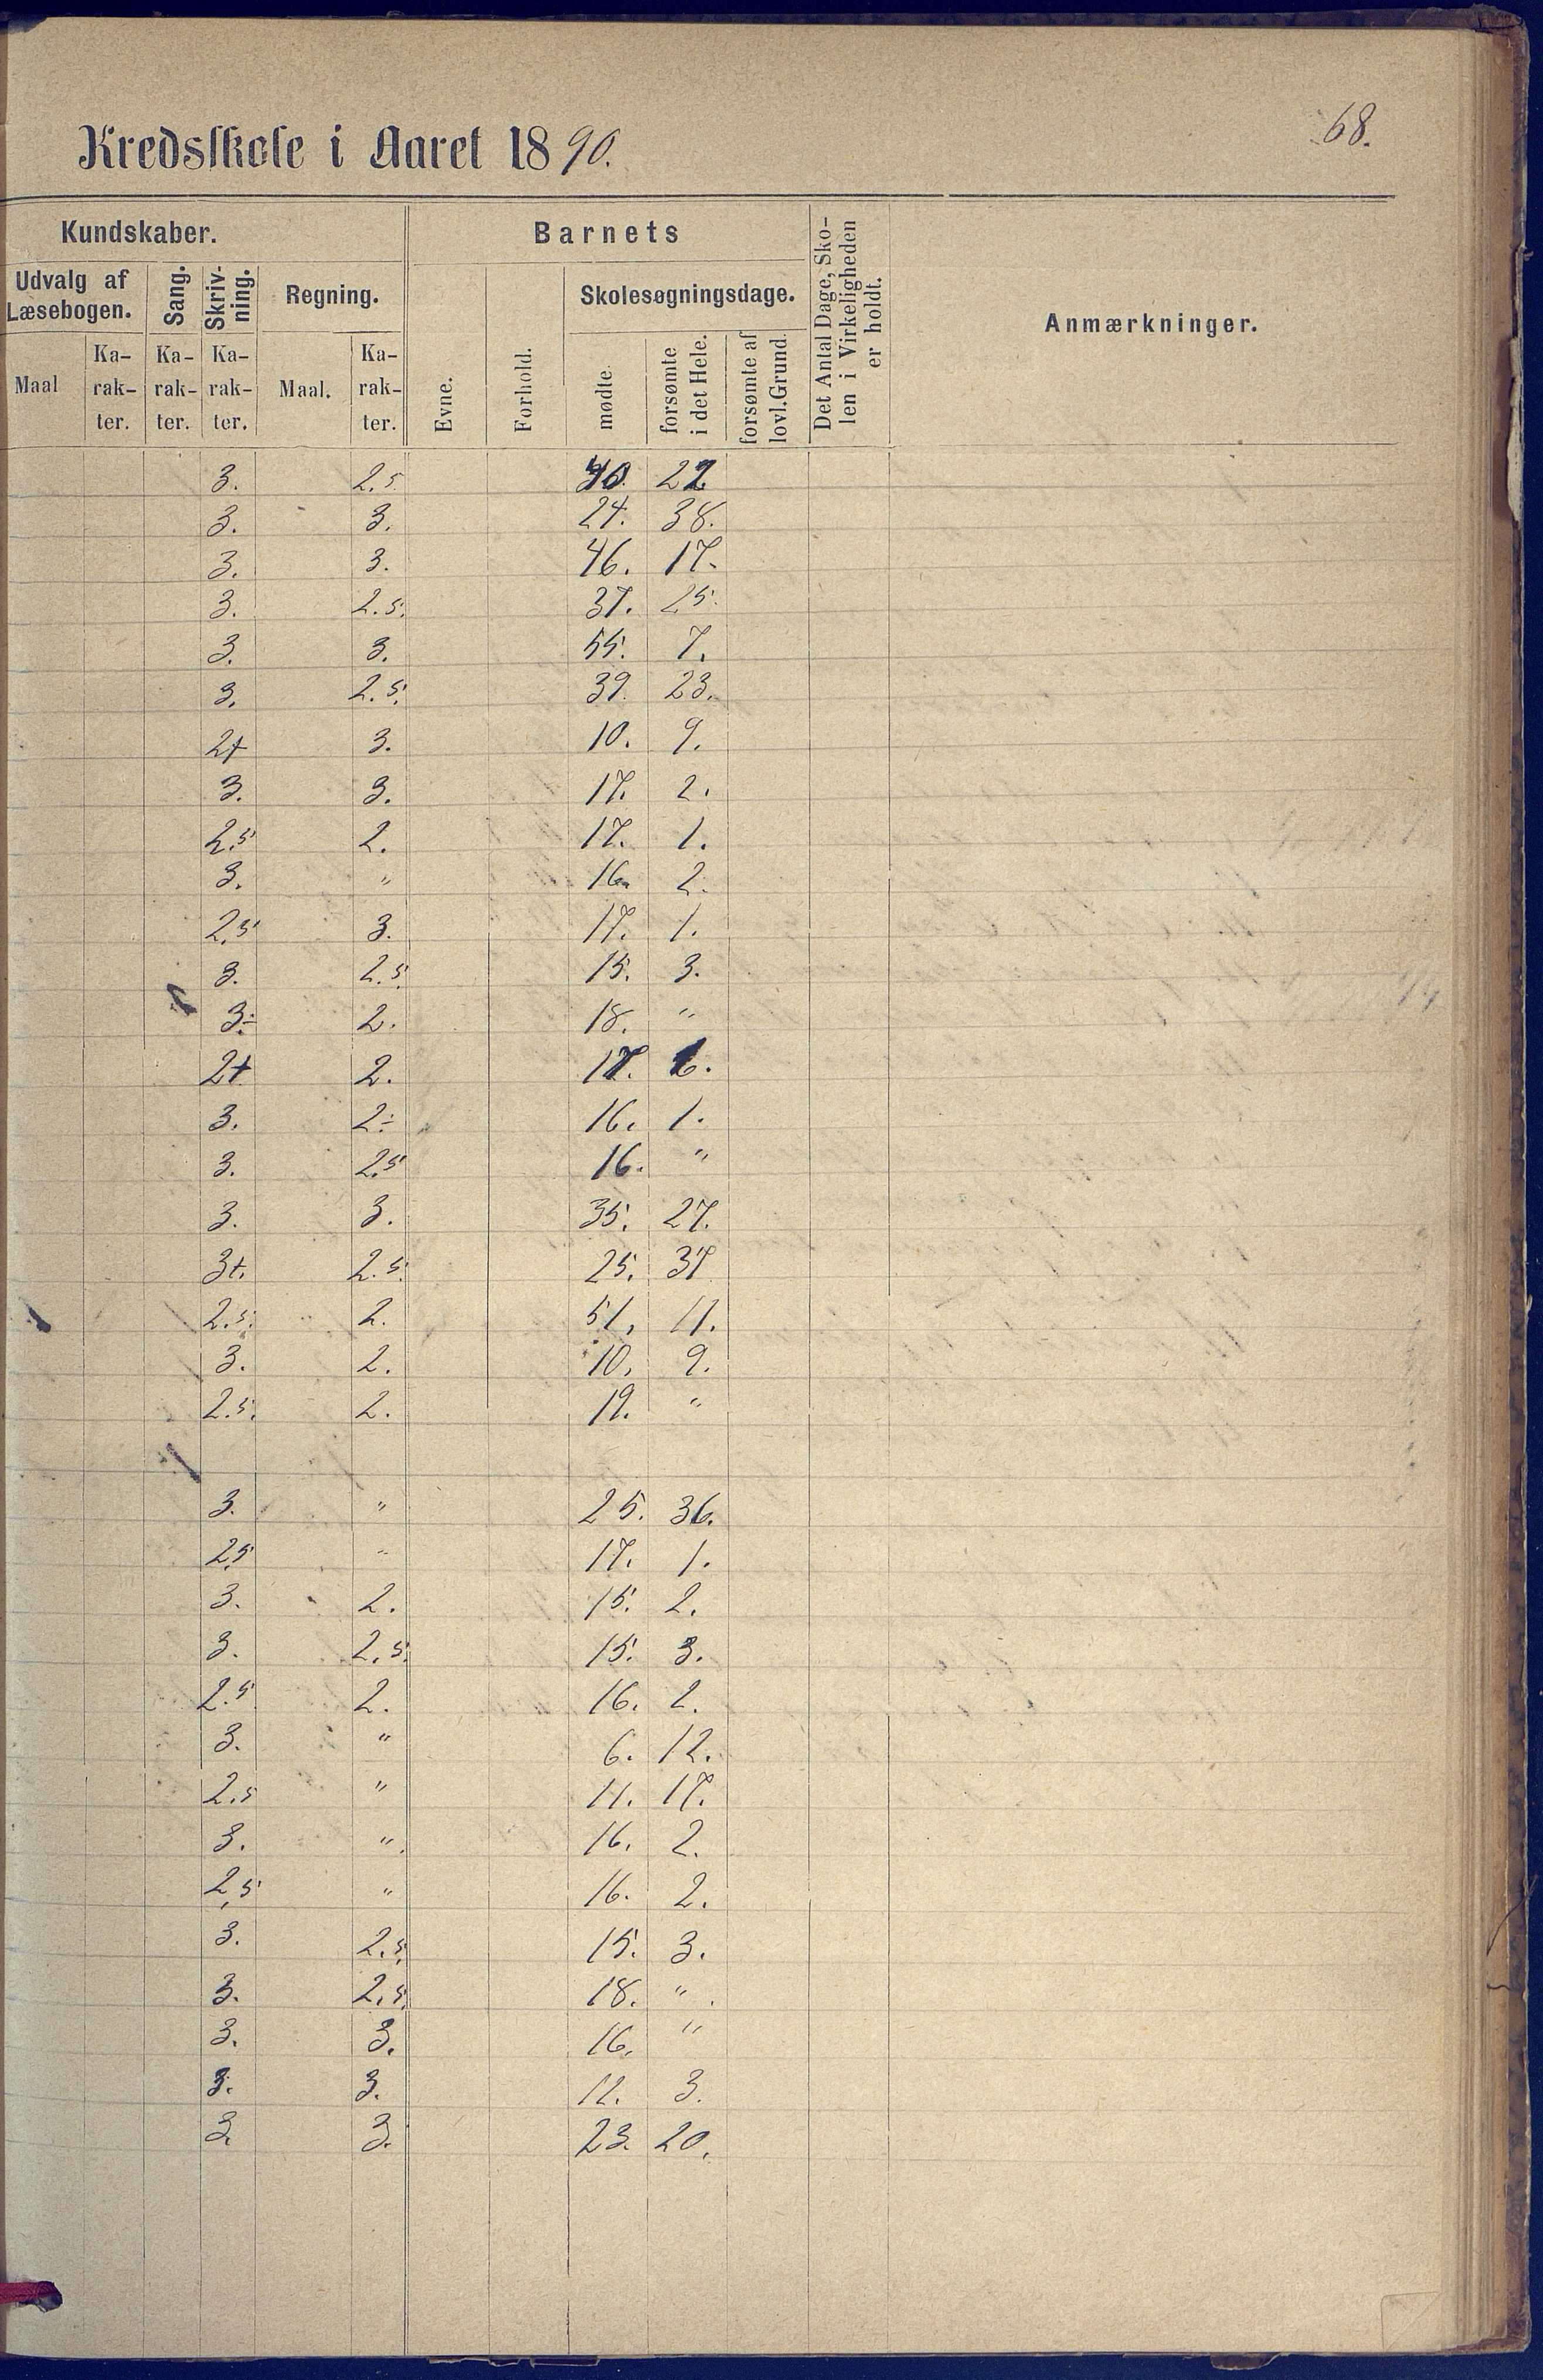 68.
Kredsskole i Aaret 1890.
Kundskaber. Barnets Det Antal Dage, Skolen i Virkeligheden er holdt. Anmærkninger.
Udvalg af Læsebogen. Sang. Skrivning. Regning. Evne. Forhold. Skolesøgningsdage.
Maal Karakter. Karakter. Karakter. Maal. Karakter. mødte. forsømte i det Hele. forsømte af lovl. Grund.
3. 2.5.
3. 3. 24. 38.
3. 3. 46. 17.
3. 2.5. 37. 25.
3. 3. 55. 7.
3. 2.5. 39. 23.
2+ 3. 10. 9.
3. 3. 17. 2.
2.5 2. 17. 1.
3. " 16. 2.
2.5 3. 17. 1.
3. 2.5. 15. 3.
3÷ 2. 18. "
2+ 2. 17.
3. 2÷ 16. 1.
3. 2.5 16. "
3. 3. 35. 27.
3+. 2.5. 25. 37
2.5. 2. 51. 11.
3. 2. 10. 9.
2.5. 2. 19. "
3. " 25. 36.
2.5 " 17. 1.
3. 2. 15. 2.
3. 2.5. 15. 3.
2.5 2. 16. 2.
3. " 6. 12.
2.5 " 11. 17.
3. " 16. 2.
2.5 " 16. 2.
3. 2.5. 15. 3.
3. 2.5. 18. "
3. 3. 16. "
3. 3. 12. 3.
3. 3. 23. 20.